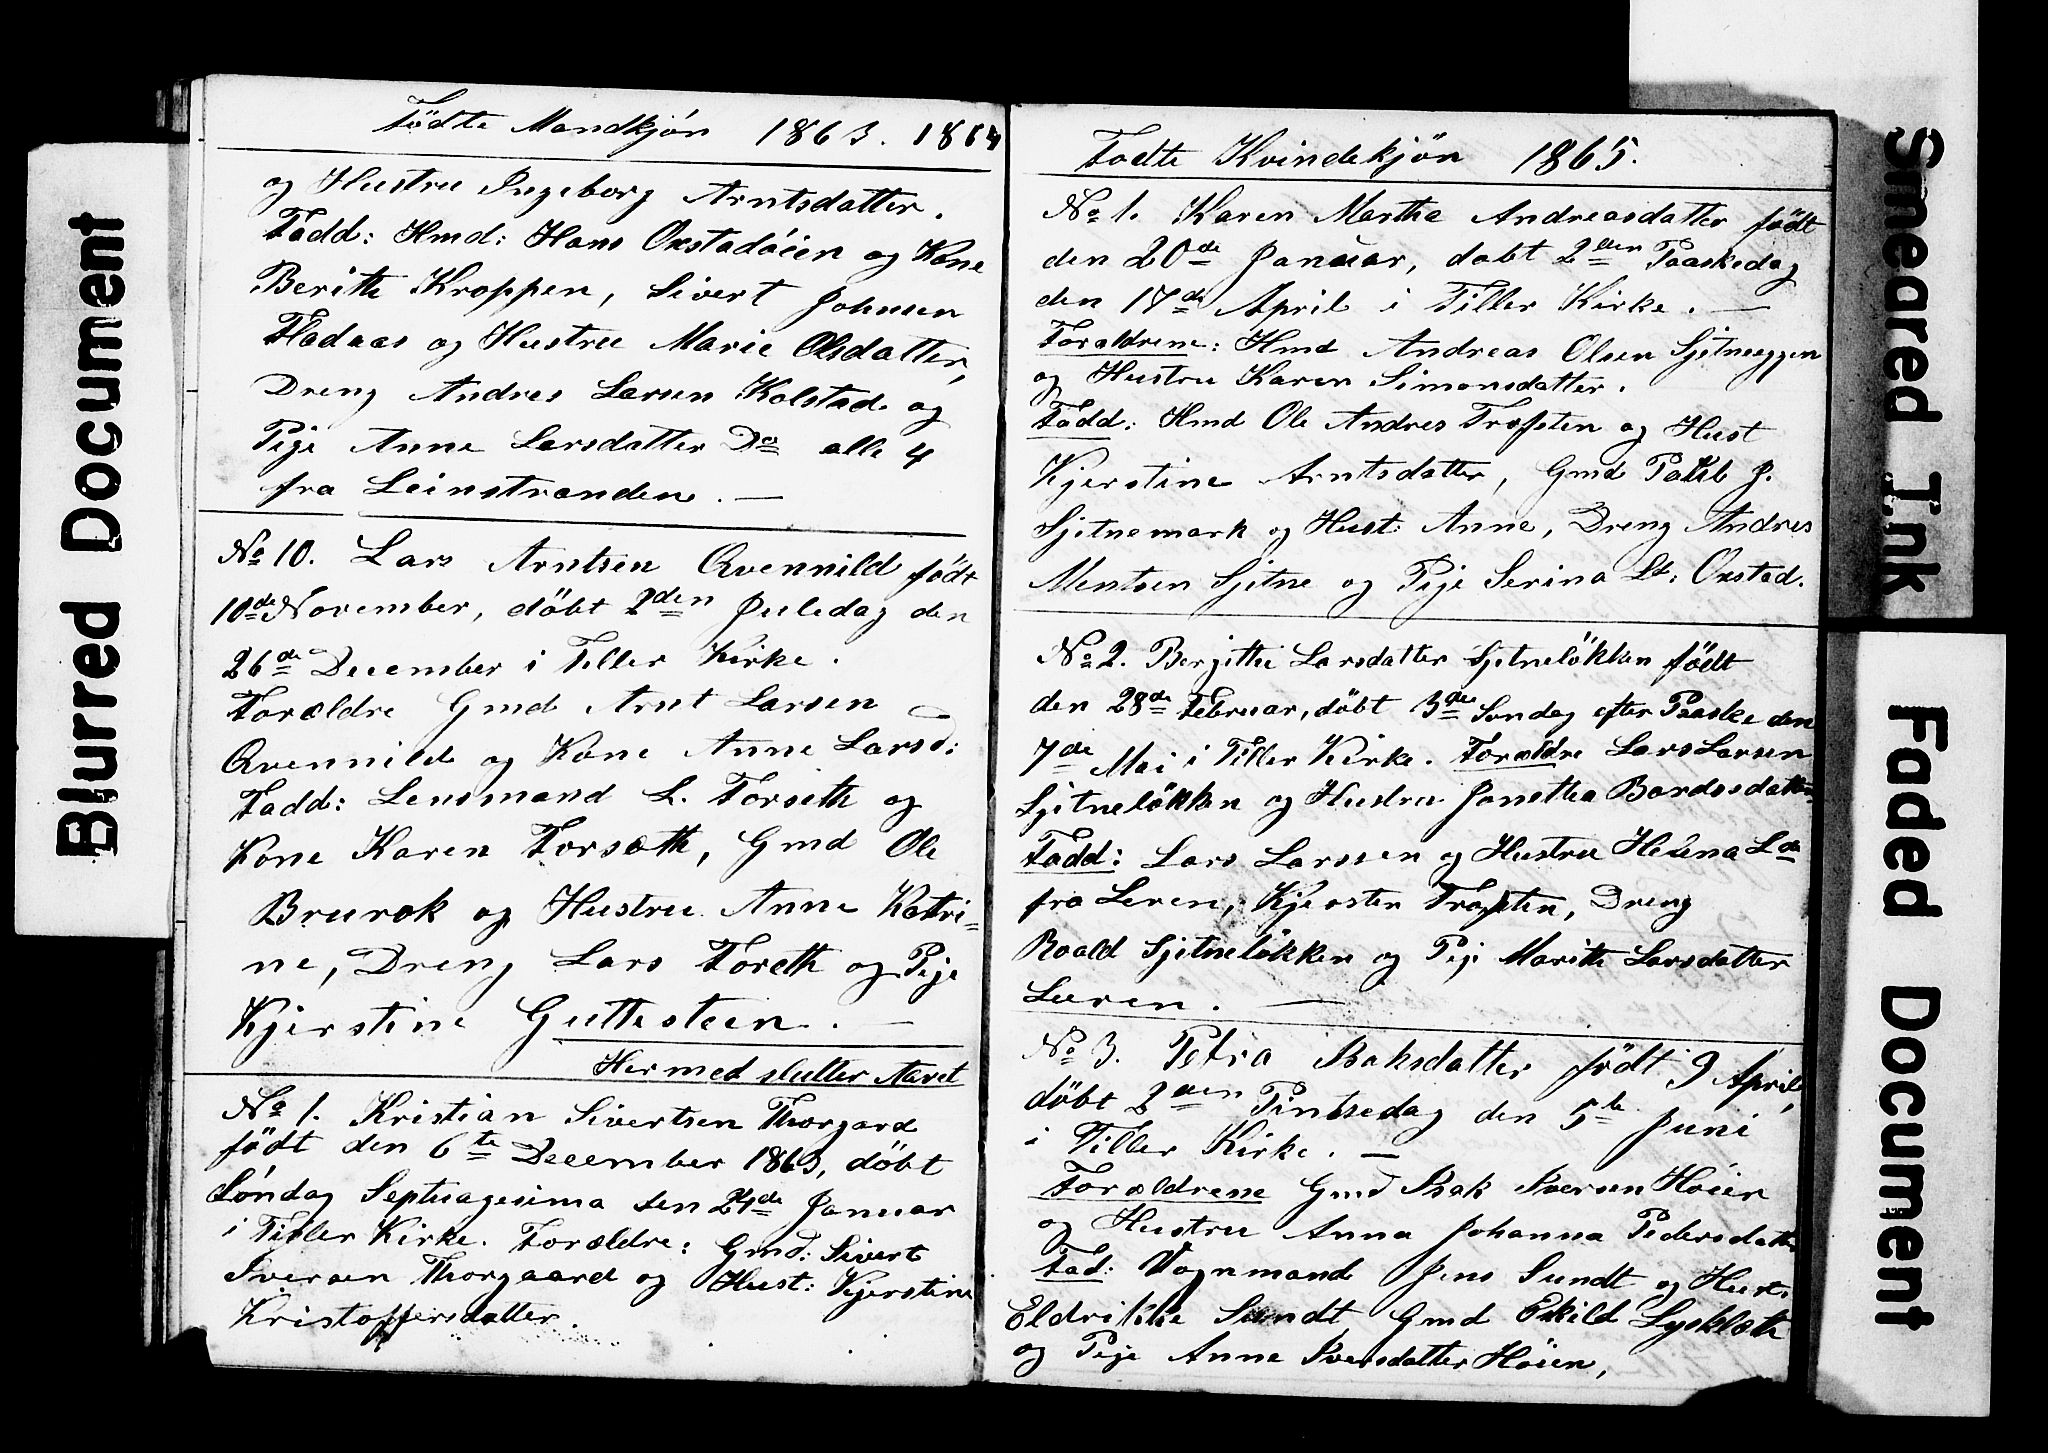 Blurred Document
Födte Mandkjön 1863. 1864
og Hustru Ingeborg Arntsdatter.
Fadd: Hmd: Hans Oxstadöien og Kone
Berith Kroppen, Sivert Johnsen
Fladaas og Hustru Marie Olsdatter,
Dreng Andres Larsen Kolstad og
Pige Anne Larsdatter Do alle 4
fra Leinstranden. —
No 10. Lars Arntsen Qvennild född
10de November, döbt 2den Juledag den
26de December i Tiller Kirke.
Forældre Gmd Arnt Larsen
Qvennild og Kone Anne Larsd:
Fadd: Lensmand L. Forseth og
Kone Karen Forsæth, Gmd Ole
Brurok og Hustru Anne Katri-
ne, Dreng Lars Foreth og Pige
Kjerstine Guttesteen. —
Hermed slutter Aaret
No 1. Kristian Sivertsen Thorgard
födt den 6te December 1863, döbt
Söndag Septuagesima den 24de Januar
i Tiller Kirke. Forældre: Gmd: Sivert
Iversen Thorgaard og Hust: Kjerstine
Kristoffersdatter.
Fodte Kvindekjön 1865.
No 1. Karen Martha Andreasdatter födt
den 20de Januar, dobt 2den Paaskedag
den 17de April i Tiller Kirke. —
Foraldrene: Hmd Andreas Olsen Sjetneeggen
og Hustru Karen Simonsdatter.
Fadd: Hmd Ole Andres Trosten og Hust
Kjerstine Arntsdatter, Gmd Paul J.
Sjetnemark og Hust: Anne, Dreng Andres
Mentsen Sjetne og Pige Serina Ld: Oxstad.
No 2. Bergitte Larsdatter Sjetneløkken födt
den 28de Februar, döbt 3die Sondag efter Paaske den
7de Mai i Tiller Kirke. Forældre Lars Larsen
Sjetneløkken og Hustru Jonetha Bardosdatter
Fadd: Lars Larssen og Hustru Helena Lda
fra Leren, Kjersten Trosten, Dreng
Roald Sjetneløkken og Pige Marith Larsdatter
Leren. —
No 3. Petra Isaksdatter födt 9 April,
döbt 2den Pintsedag den 5te Juni
i Tiller Kirke. —
Forældrene Gmd Isak Iversen Höien
og Hustru Anna Johanna Pedersdatter
Fad: Vognmand Jens Sundt og Hust:
Eldrikke Sundt, Gmd Eskild Lysklæth
og Pige Anne Iversdatter Höien,
Smeared Ink
Faded Document